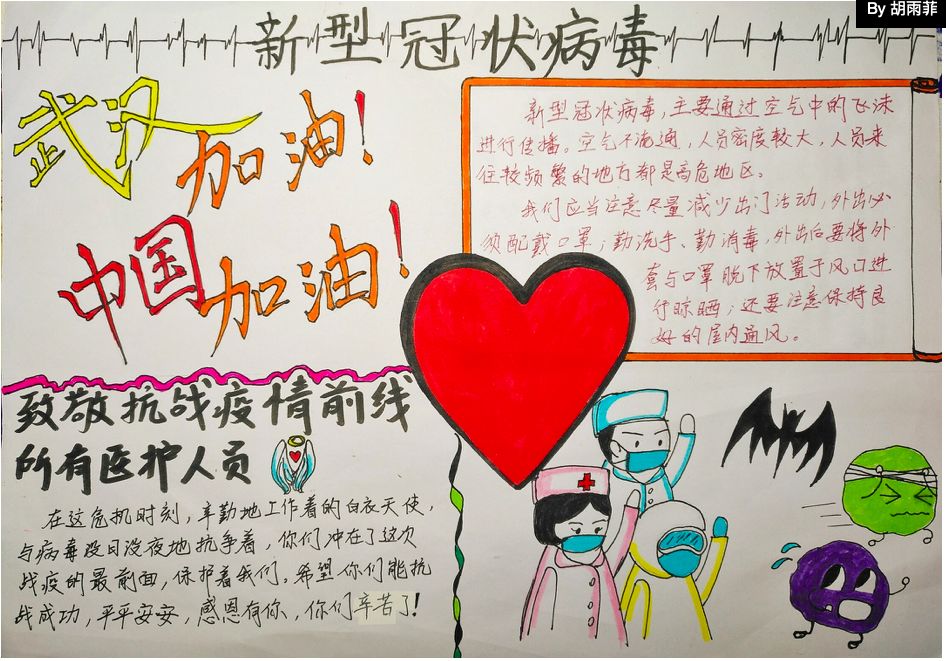 By 胡雨菲
新型冠状病毒
武汉
加油！
中国
加油！
新型冠状病毒，主要通过空气中的飞沫
进行传播。空气不流通，人员密度较大，人员来
往较频繁的地方都是高危地区。
我们应当注意尽量减少出门活动，外出必
须配戴口罩；勤洗手、勤消毒，外出后要将外
套与口罩脱下放置于风口进
行晾晒；还要注意保持良
好的屋内通风。
致敬抗战疫情前线
所有医护人员
在这危机时刻，辛勤地工作着的白衣天使，
与病毒没日没夜地抗争着，你们冲在了这次
战疫的最前面，保护着我们。希望你们能抗
战成功，平平安安，感恩有你，你们辛苦了！